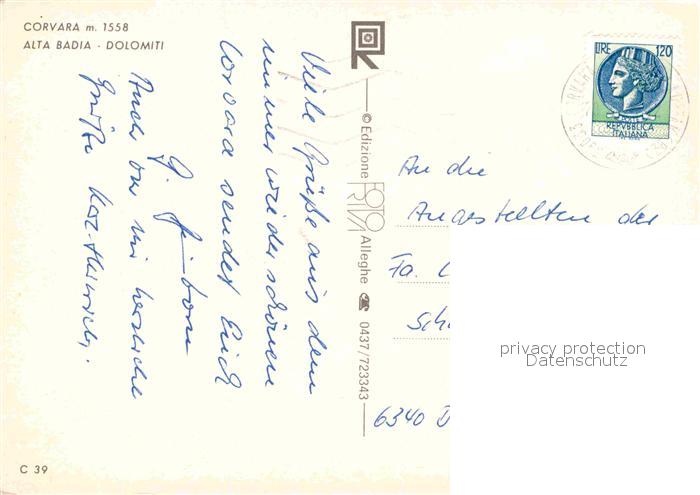 CORVARA m. 1558
ALTA BADIA - DOLOMITI
Viele Grüße aus dem
immer wieder schönen
Corvara sendet Euch
G.
Auch von mir herzliche
Grüße
© Edizione FOTO RIVA Alleghe 0437/723343
LIRE 120
REPVBBLICA
ITALIANA
An die
Angestellten der
Fa.
6340 D
privacy protection
Datenschutz
C 39